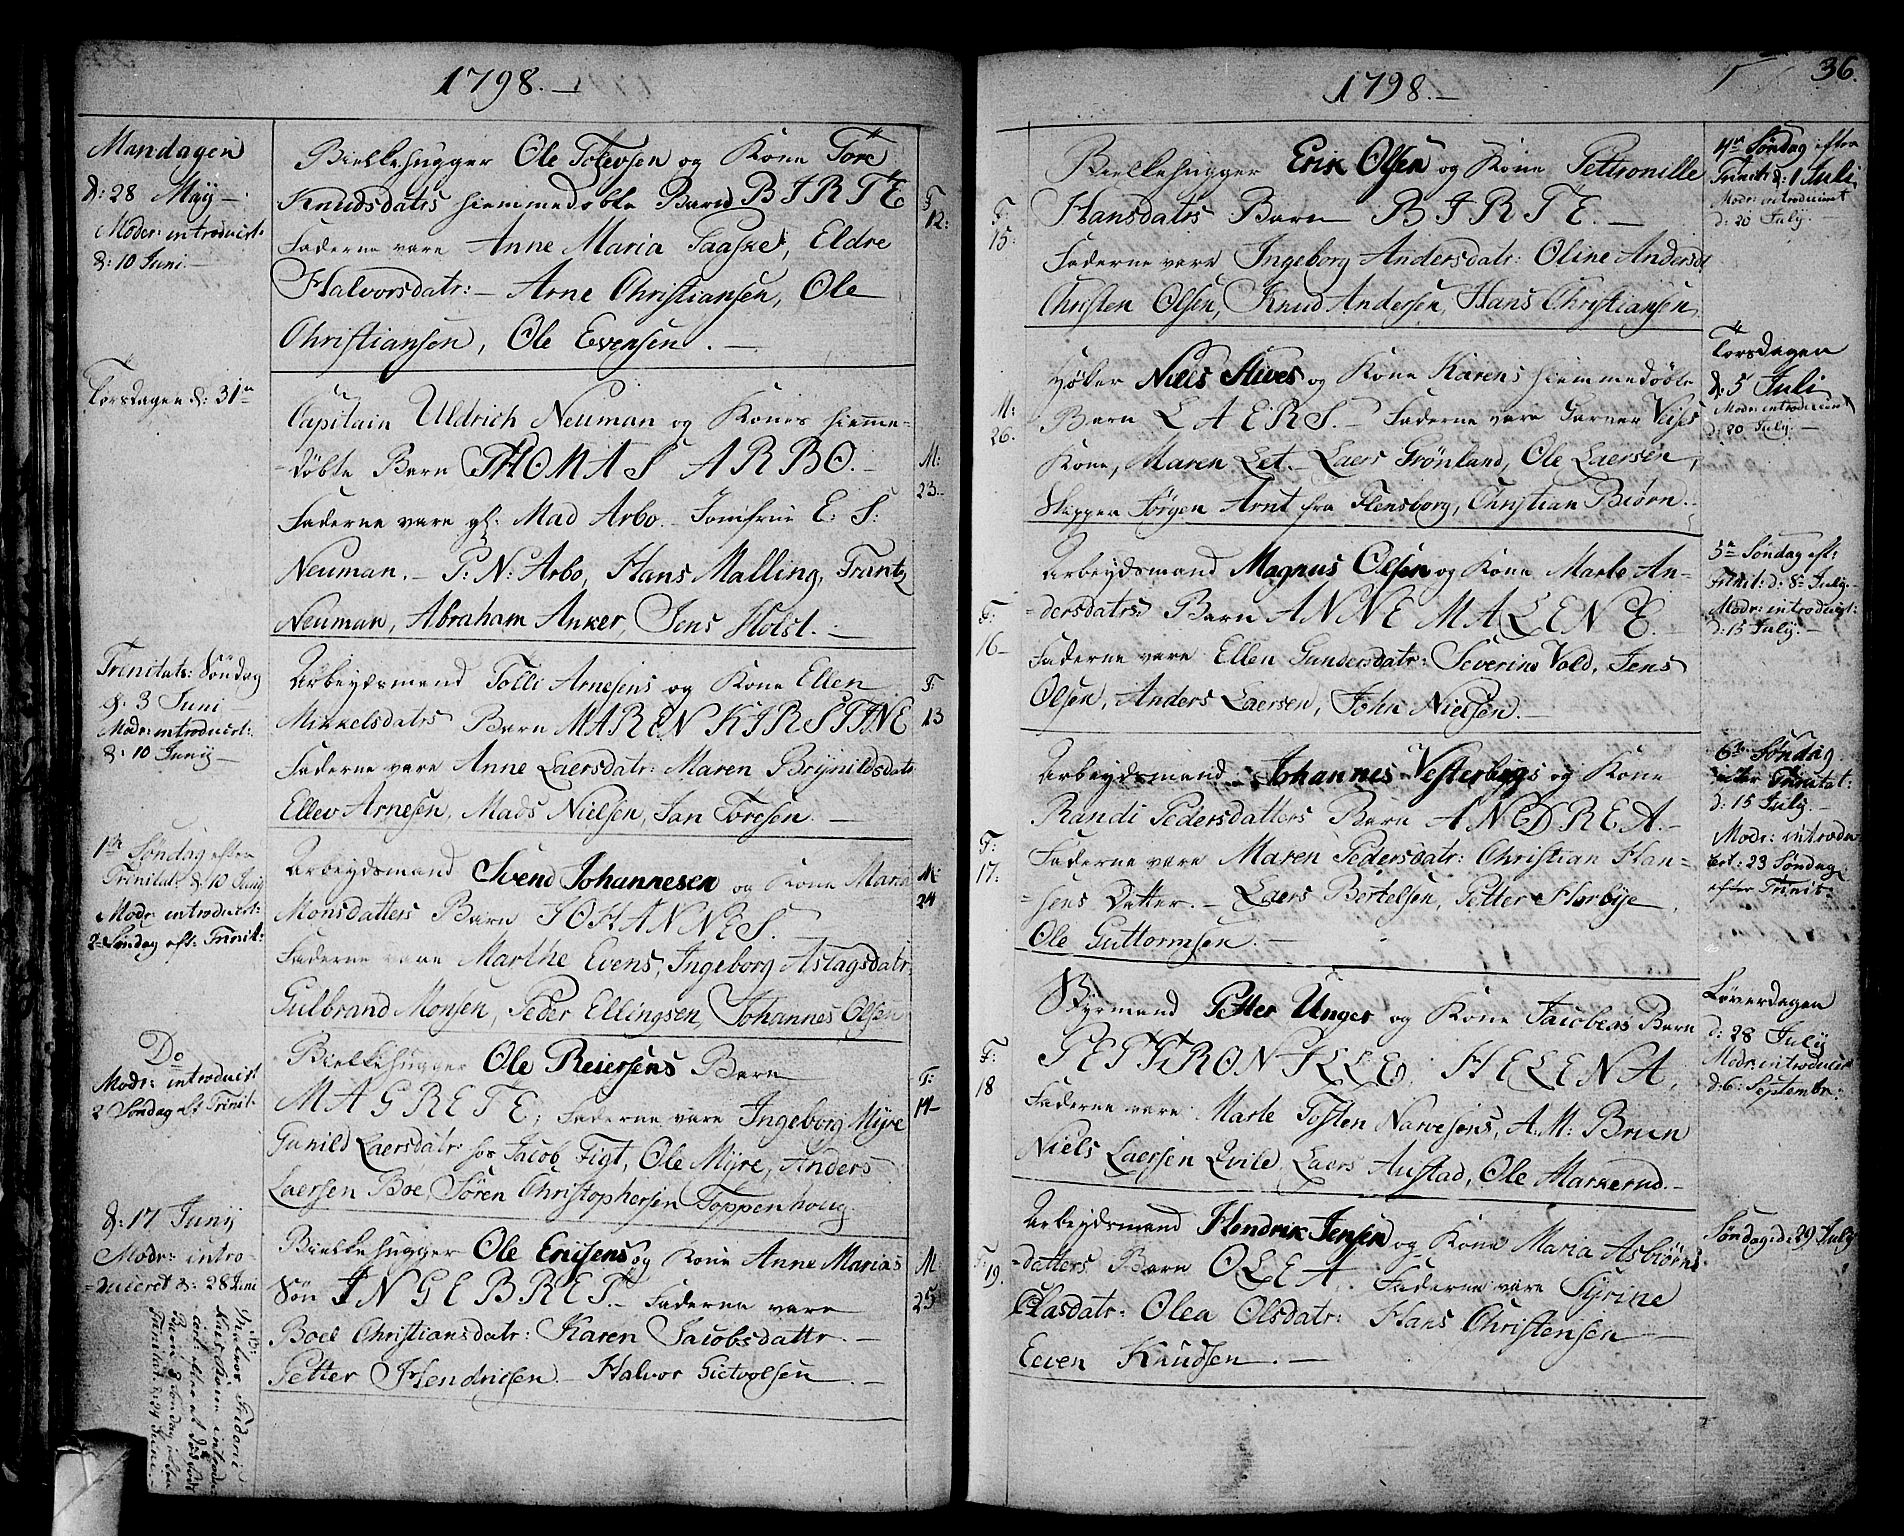 1798.
Mandagen
d: 28 Maÿ
Moder: introducert:
d: 10 Juni.
Biellehugger Ole Tolevsen og Kone Tore
Knudsdatrs hiemmedøbte Barn BIRTE
F
12:
Faderne vare Anne Maria Faaske, Eldre
Halvorsdatr: Arne Christiansen, Ole
Christiansen, Ole Evensen.
Torsdagen d: 31te
Capitain Uldrich Neuman og Kones hiemme-
døbte Barn THOMAS ARBO.
M:
23.
Faderne vare Mad Arbo. Jomfrue E: S:
Neuman. P: N: Arbo, Hans Malling, Frantz
Neuman, Abraham Anker, Jens Holst.
Trinitats: Søndag
d. 3 Juni
Modr: introducirt:
d: 10 Junij
Arbeÿdsmand Tolli Arnesens og Kone Ellen
Mikkelsdatrs Barn MAREN KIRSTINE
F:
13
Faderne vare Anne Laersdatr: Maren Brÿnildsdatr
Ellev Arnesen, Mads Nielsen, Jan Toresen.
1te Søndag efter
Trinitat: d: 10 Junij
Modr: introducirt:
2 Søndag eft: Trinit:
Arbeÿdsmand Svend Johannesen og Kone Maria
Monsdatters Barn JOHANNES.
M:
24
Faderne vare Marthe Evens, Ingeborg Aslagsdatr
Gulbrand Monsen, Peder Ellingsen, Johannes Olsen
Do
Modr: introducirt
2 Søndag eft Trinit:
Biellehugger Ole Reiersens Barn
MAGRETE; Faderne vare Ingeborg Mÿre
F:
14
Gunild Laersdatr hos Jacob Figt, Ole Mÿre, Anders
Laersen Boe, Søren Christophersen Toppenhoug.
d: 17 Junij
Modr: intro-
duceret d: 28 Juni
Biellehugger Ole Erichsens og Kone Anne Marias
Søn INGEBRET. Faderne vare
M:
25
Boel Christiansdatr: Karen Jacobsdattr.
Petter Hendrichsen. Halvor Gietvolsen
NB:
Halvor Frideric
Kone introdu-
død født
Barn Søndag efter
Trinitat: d: 24 Juni.
1798.
36.
Biellehugger Erik Olsen og Kone Pettronille
Hansdatrs Barn BIRTE.
F:
15:
Faderne vare Ingeborg Andersdatr: Oline Andersd
Christen Olsen, Knud Andersen, Hans Christiansen
4de Søndag efter
Trinit: d: 1 Juli
Modr: introducirt
d: 20 Julÿ.
Høker Niels Stives og Kone Karens hiemmedøbte
M:
26.
Barn LAERS. Faderne vare Garver Veises
Kone, Maren Let. Laers Grönland, Ole Laersen,
Skipper Jørgen Arnt fra Flensborg, Christian Biørn.
Torsdagen
d: 5 Juli
Modr: introducirt
d: 20 Julÿ.
Arbeÿdsmand Magnus Olsen og Kone Marte An-
dersdatrs: Barn ANNE MALENE.
F:
16
Faderne vare Ellen Gundersdatr: Severine Vold, Jens
Olsen, Anders Laersen, John Nielsen.
5te Søndag eft:
Trinit: d: 8 Julÿ.
Modr: introducirt:
d: 15 Julÿ.
Arbeÿdsmand Johannes Vesterbÿes og Kone
Randi Pedersdatters Barn ANEDREA.
F:
17.
Faderne vare Maren Pedersdatr: Christian Han-
sens Datter. Laers Bertelsen, Petter Horbÿe
Ole Guttormsen.
6te Søndag
efter Trinitat:
d: 15 Julÿ
Modr: introdu-
cirt: 23 Søndag
efter Trinit:
Bÿrmand Petter Unger og Kone Jacobeas Barn
PETTRONILLE HELENA,
F:
18
Faderne vare Marte Tosten Narvesens, A. M: Brun
Niels Laersen Qvile, Laers Austad, Ole Markerud.
Løverdagen
d: 28 Julÿ
Modr: introducirt
d: 6 Septembr:
Arbeÿdsmand Hendrik Jensen og Kone Maria Asbiørns-
datters Barn OLEA. Faderne vare Sÿrine
F:
19.
Olasdatr: Olea Olsdatr: Hans Christensen
Even Knudsen.
Søndag d: 29 Julÿ